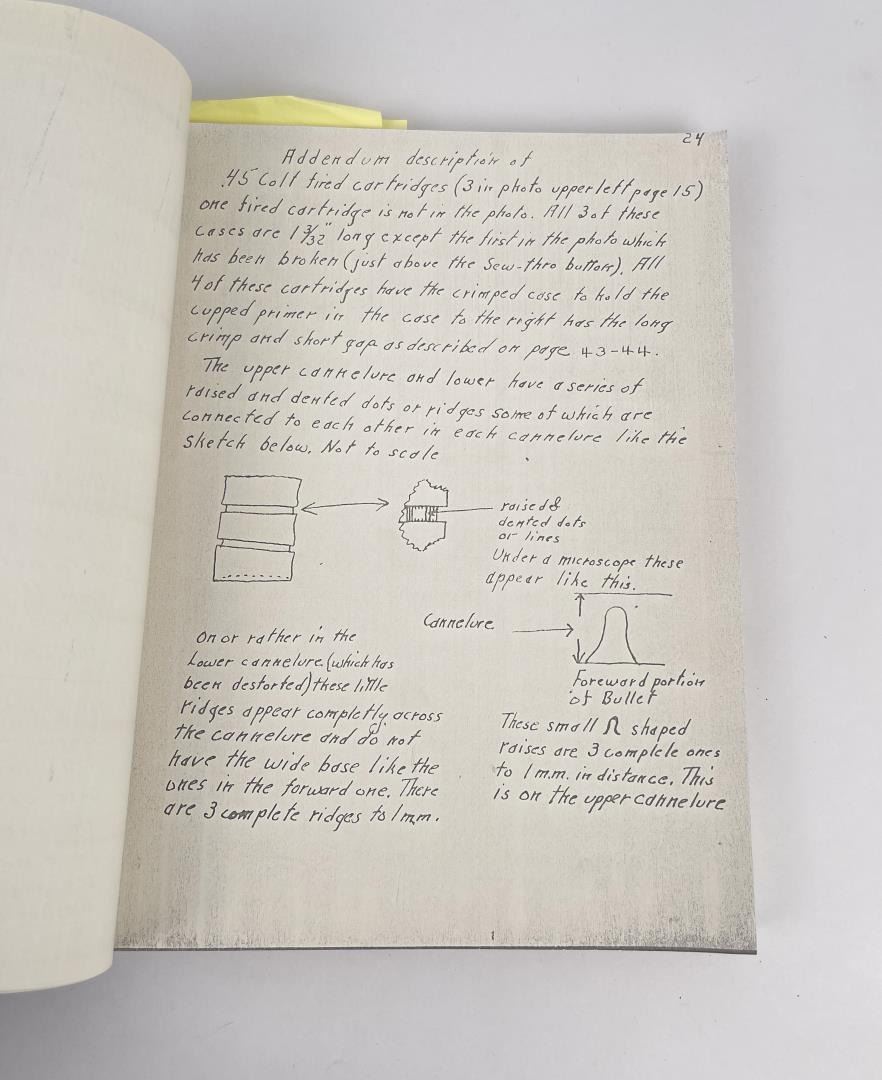 24
Addendum description of
.45 Colt fired cartridges (3 in photo upper left page 15)
one fired cartridge is not in the photo. All 3 of these
cases are 1 3/32" long except the first in the photo which
has been broken (just above the Sew-thro button). All
4 of these cartridges have the crimped case to hold the
cupped primer in the case to the right has the long
crimp and short gap as described on page 43-44.
The upper cannelure and lower have a series of
raised and dented dots or ridges some of which are
connected to each other in each cannelure like the
sketch below. Not to scale
raised &
dented dots
or lines
Under a microscope these
appear like this.
Cannelure
Foreward portion
of Bullet
On or rather in the
Lower cannelure (which has
been destorted) these little
ridges appear completly across
the cannelure and do not
have the wide base like the
ones in the forward one. There
are 3 complete ridges to 1 m.m.
These small Ω shaped
raises are 3 complete ones
to 1 m.m. in distance. This
is on the upper cannelure